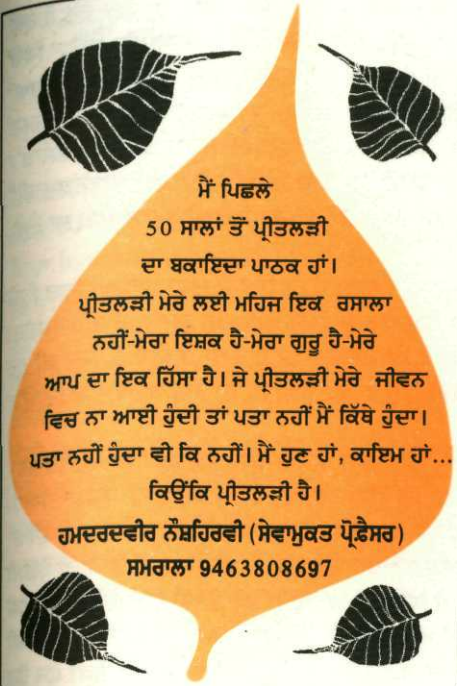 ਮੈਂ ਪਿਛਲੇ
50 ਸਾਲਾਂ ਤੋਂ ਪ੍ਰੀਤਲੜੀ
ਦਾ ਬਕਾਇਦਾ ਪਾਠਕ ਹਾਂ।
ਪ੍ਰੀਤਲੜੀ ਮੇਰੇ ਲਈ ਮਹਿਜ ਇਕ ਰਸਾਲਾ
ਨਹੀਂ-ਮੇਰਾ ਇਸ਼ਕ ਹੈ-ਮੇਰਾ ਗੁਰੂ ਹੈ-ਮੇਰੇ
ਆਪ ਦਾ ਇਕ ਹਿੱਸਾ ਹੈ। ਜੇ ਪ੍ਰੀਤਲੜੀ ਮੇਰੇ ਜੀਵਨ
ਵਿਚ ਨਾ ਆਈ ਹੁੰਦੀ ਤਾਂ ਪਤਾ ਨਹੀਂ ਮੈਂ ਕਿੱਥੇ ਹੁੰਦਾ।
ਪਤਾ ਨਹੀਂ ਹੁੰਦਾ ਵੀ ਕਿ ਨਹੀਂ। ਮੈਂ ਹੁਣ ਹਾਂ, ਕਾਇਮ ਹਾਂ...
ਕਿਉਂਕਿ ਪ੍ਰੀਤਲੜੀ ਹੈ।
ਹਮਦਰਦਵੀਰ ਨੌਸ਼ਹਿਰਵੀ (ਸੇਵਾਮੁਕਤ ਪ੍ਰੋਫ਼ੈਸਰ)
ਸਮਰਾਲਾ 9463808697